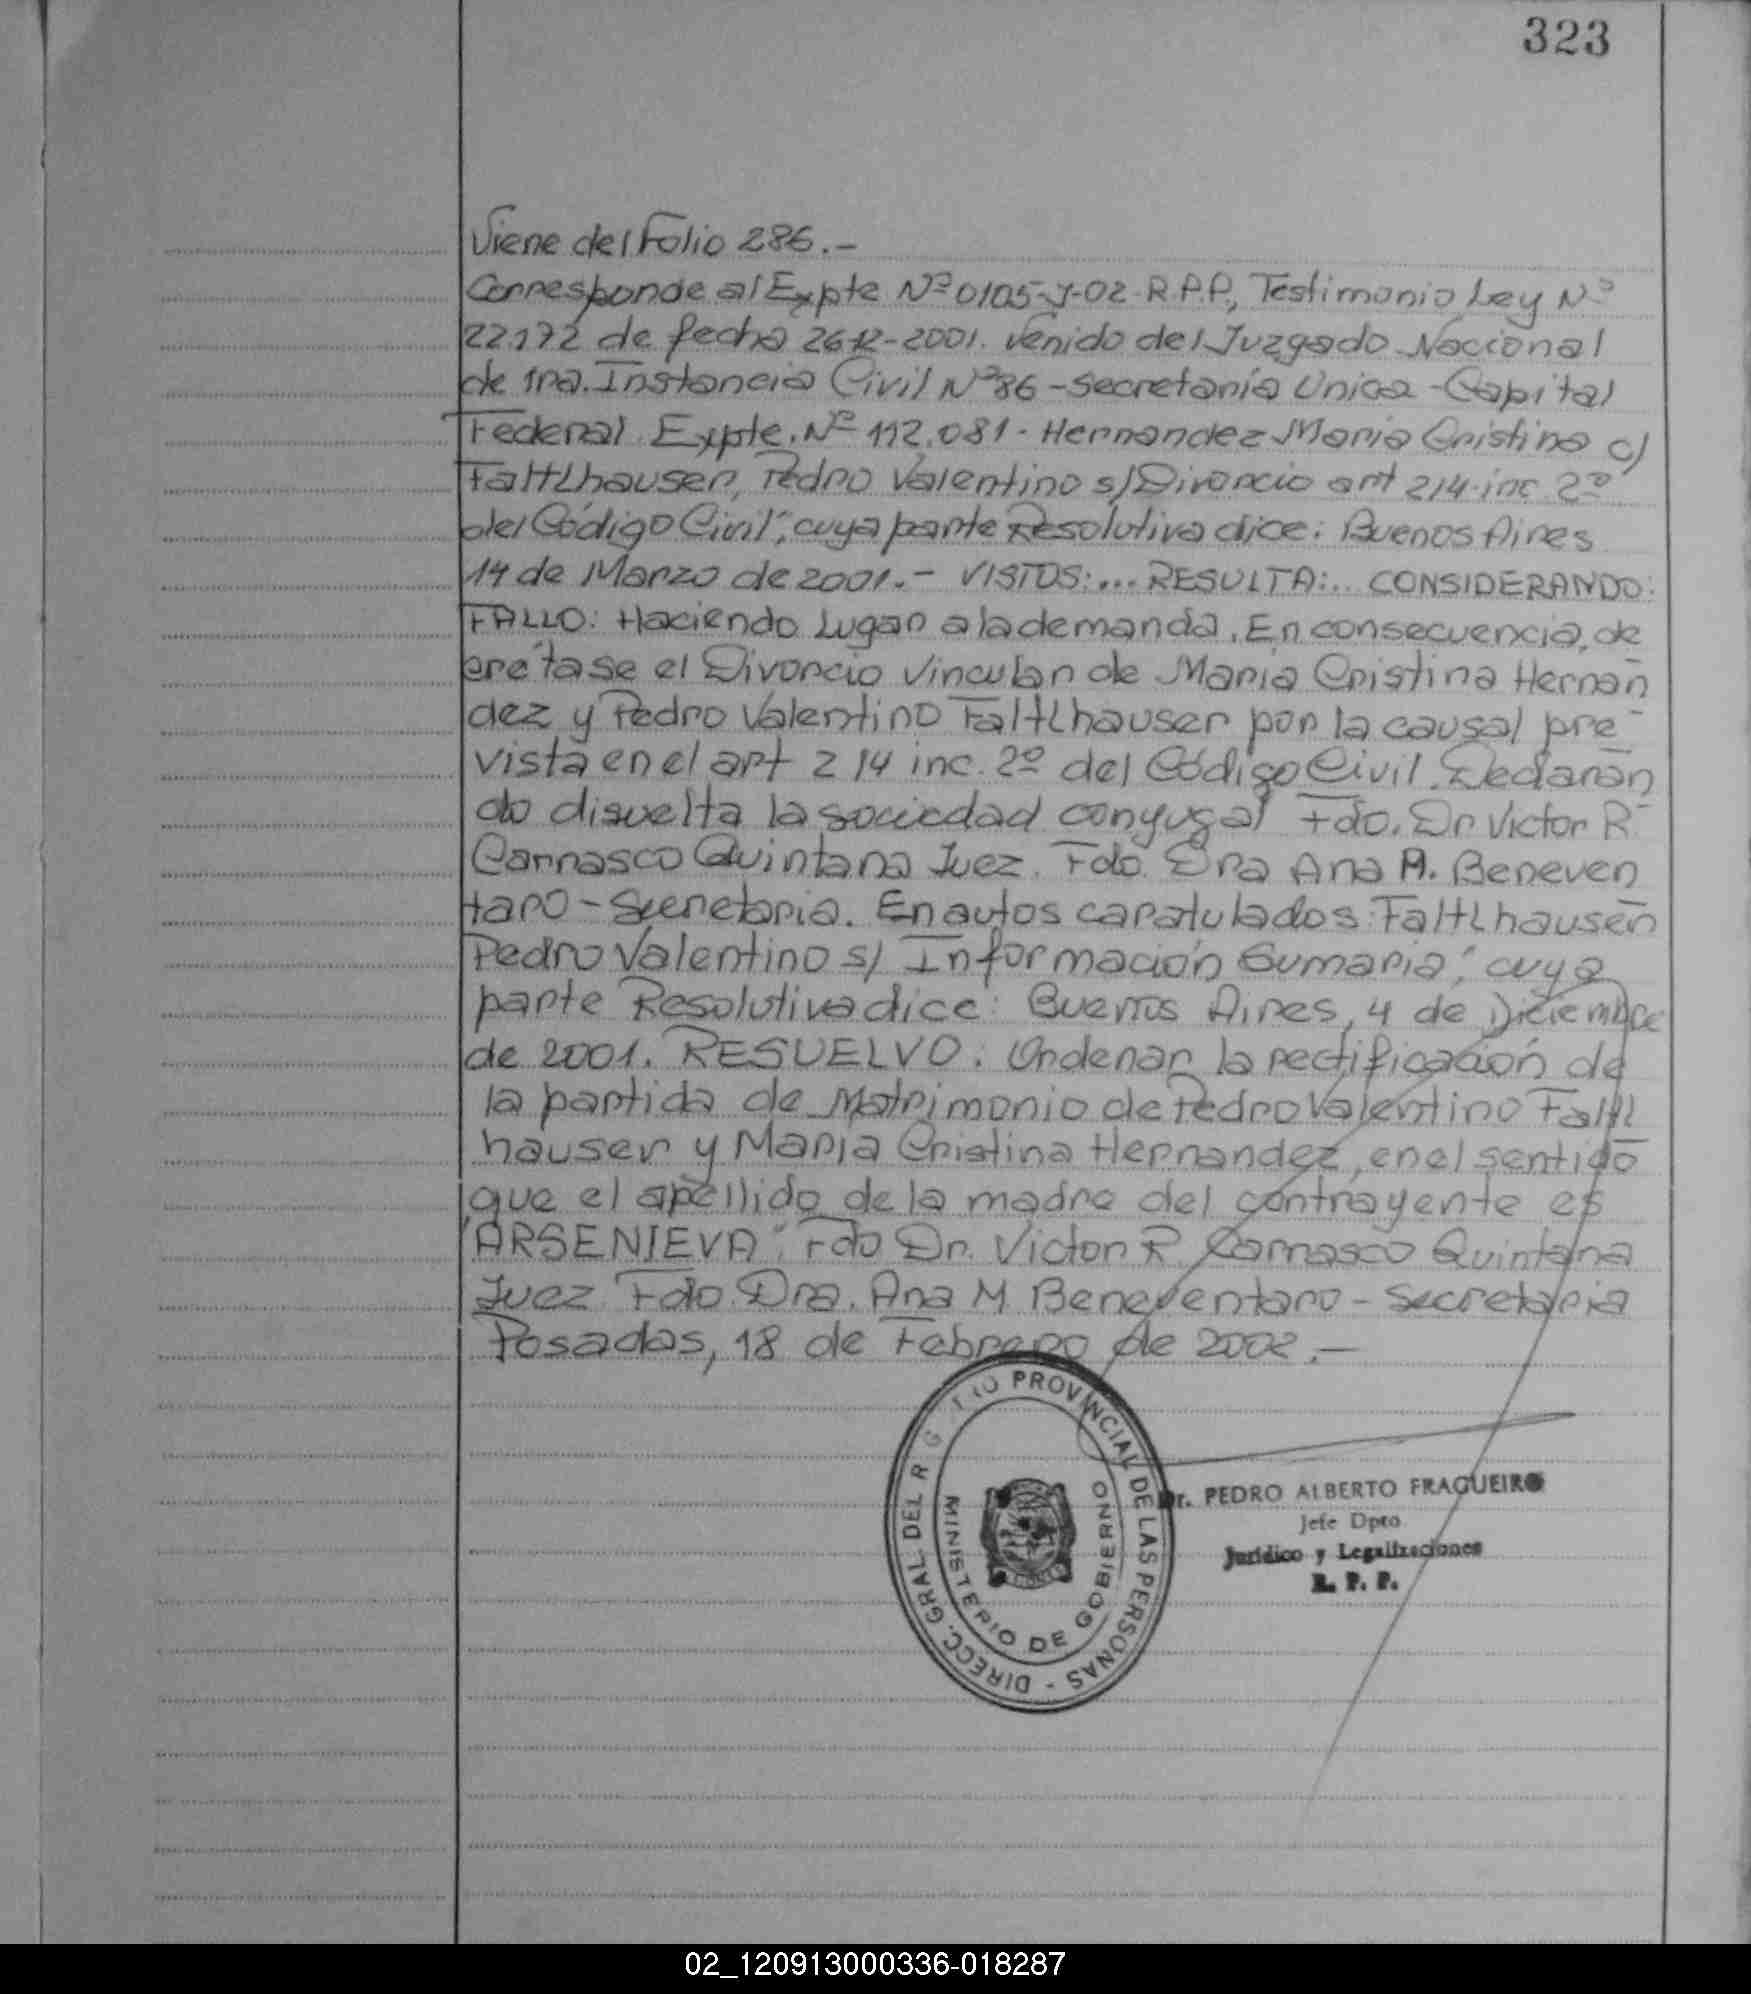 323
Viene del Folio 286.-
Corresponde al Expte Nº 0105-J-02-R.P.P., Testimonio Ley Nº
22.172 de fecha 26-12-2001. Venido del Juzgado Nacional
de 1ra. Instancia Civil Nº 86 - Secretaría Unica - Capital
Federal. Expte. Nº 112.081. Hernandez Maria Cristina c/
Faltlhauser, Pedro Valentino s/Divorcio art 214 inc. 2º
del Código Civil", cuya parte Resolutiva dice: Buenos Aires
14 de Marzo de 2001.- VISTOS:... RESULTA:... CONSIDERANDO:
FALLO: Haciendo Lugar a la demanda. En consecuencia, de
cretase el Divorcio Vincular de Maria Cristina Hernan
dez y Pedro Valentino Faltlhauser por la causal pre
vista en el art 214 inc. 2º del Código Civil. Declaran
do disuelta la sociedad conyugal Fdo. Dr Victor R.
Carrasco Quintana Juez. Fdo. Dra Ana M. Beneven
taro - Secretaria. En autos caratulados: Faltlhauser
Pedro Valentino s/ Información Sumaria", cuya
parte Resolutiva dice: Buenos Aires, 4 de Diciembre
de 2001. RESUELVO: Ordenar la rectificación de
la partida de Matrimonio de Pedro Valentino Faltl
hauser y Maria Cristina Hernandez, en el sentido
que el apellido de la madre del contrayente es
"ARSENIEVA". Fdo Dr. Victor R. Carrasco Quintana
Juez. Fdo. Dra. Ana M. Beneventaro - Secretaria
Posadas, 18 de Febrero de 2002.-
DIRECC. GRAL. DEL R G TRO PROVINCIAL DE LAS PERSONAS -
MINISTERIO DE GOBIERNO
Dr. PEDRO ALBERTO FRAGUEIRO
Jefe Dpto.
Jurídico y Legalizaciones
R. P. P.
02_120913000336-018287